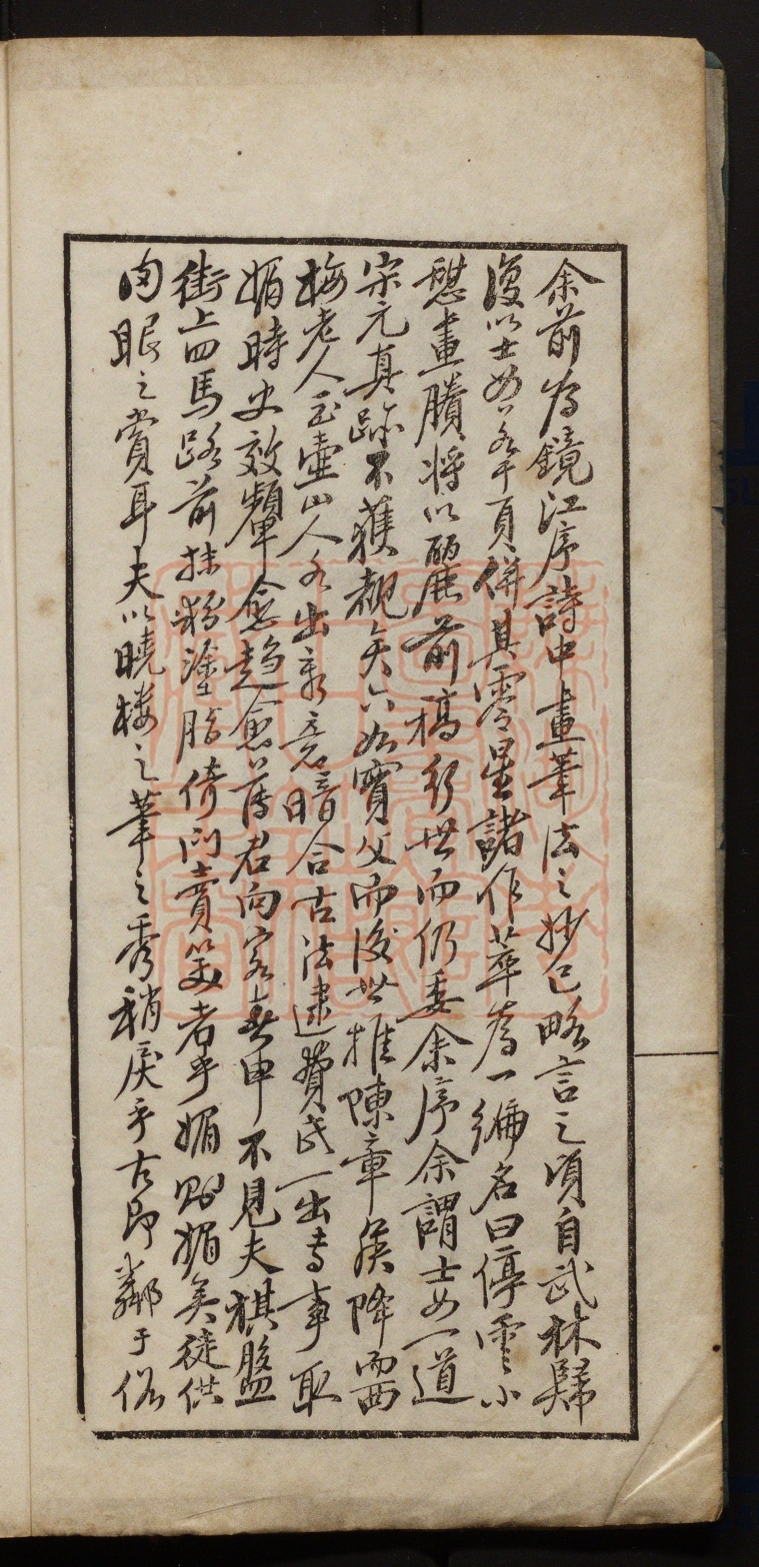 余前為鏡江序詩中畫筆法之妙已略言之頃自武林歸
復以士女若干頁併其零星諸作萃為一編名曰停雲小
憩畫賸將以麗前稿行世而仍委余序余謂士女一道
宋元真跡不獲覩矣六如實父而後世推陳章侯降而西
梅老人玉壺山人各出新意暗合古法逮費氏一出專事取
媚時史效顰愈趨愈薄君向客春申不見夫棋盤
街上四馬路前抹粉塗脂倚門賣笑者乎媚則媚矣徒供
肉眼之賞耳夫以曉樓之筆之秀稍戾乎古即鄰于俗